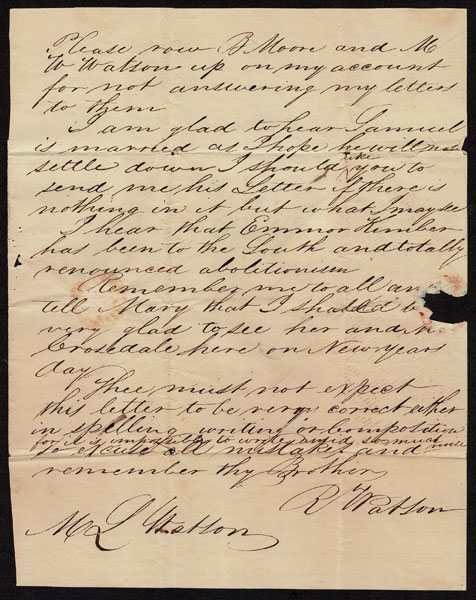 Please row B Moore and M
W Watson up on my account
for not answering my letters
to them
I am glad to hear Samuel
is married as I hope he will now
settle down I should like you to
send me his Letter if there is
nothing in it but what I may see
I hear that Emmor Kimber
has been to the South and totally
renounced abolitionism
Remember me to all an
tell Mary that I should b
very glad to see her and
Crosedale here on New Years
day
Thee must not expect
this letter to be very correct either
in spelling writing or composition
for it is impossible to write amid so much noise
so excuse all mistakes and
remember thy Brother
R Watson
M L Watson